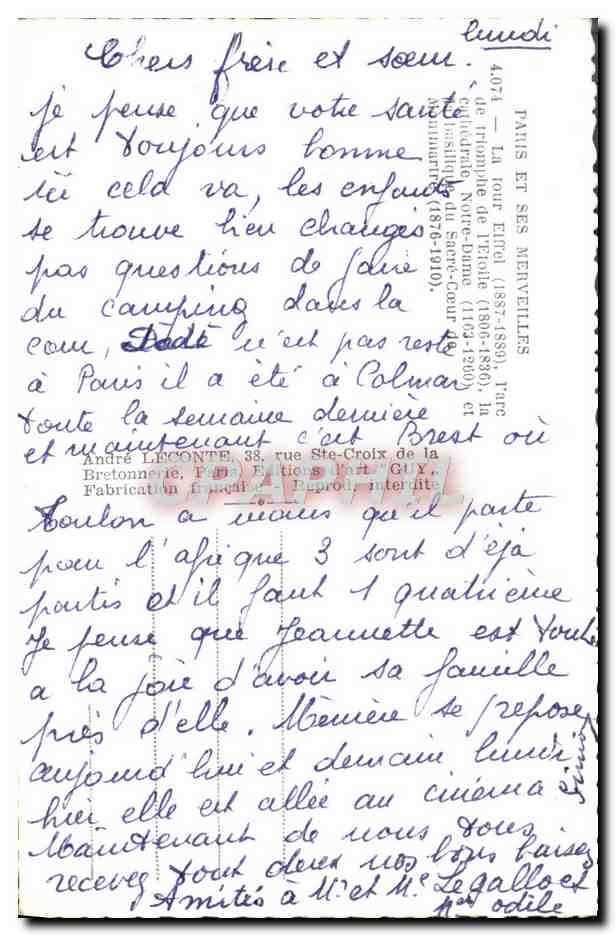 lundi
Chers frère et sœur.
je pense que votre santé
est toujours bonne
ici cela va, les enfants
se trouve bien changés
pas questions de faire
du camping dans la
cour, Dédé n'est pas resté
à Paris il a été à Colmar
toute la semaine dernière
et maintenant c'est Brest où
Toulon a moins qu'il parte
pour l'afrique 3 sont d'éjà
partis et il faut 1 quatrième
Je pense que Jeannette est toute
a la joie d'avoir sa famille
près d'elle. Mémère se repose
aujourd'hui et demain lundi
hier elle est allée au cinéma
Maintenant de nous tous
recevez tout deux nos bons baisers
Simone
Amitiés à Mr et Me Legalloet
Melle odile
PARIS ET SES MERVEILLES
4.074 — La tour Eiffel (1887-1889), l'arc
de triomphe de l'Etoile (1806-1836), la
cathédrale Notre-Dame (1163-1260) et
la basilique du Sacré-Cœur de
Montmartre (1876-1910).
André LECONTE, 38, rue Ste-Croix de la
Bretonnerie, Paris, Editions d'art "GUY"
Fabrication française - Reprod. interdite